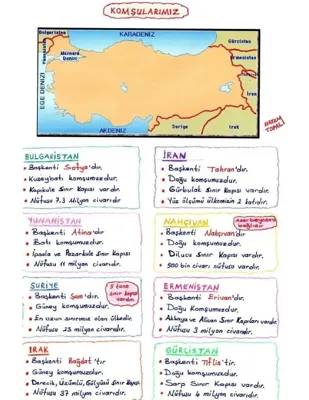 KOMŞULARIMIZ
Bulgaristan
KARADENİZ
Gürcistan
Marmara
Denizi
Ermenistan
EGE DENİZİ
İran
AKDENİZ
Suriye
Irak
BULGARİSTAN
• Başkenti Sofya'dır.
• Kuzeybatı komşumuzdur.
• Kapıkule Sınır Kapısı vardır.
• Nüfusu 7.3 Milyon civarıdır.
İRAN
• Başkenti Tahran'dır.
• Doğu komşumuzdur.
• Gürbulak Sınır Kapısı vardır.
• Yüz ölçümü ülkemizin 2 katıdır.
YUNANİSTAN
• Başkenti Atina'dır.
• Batı komşumuzdur.
• İpsala ve Pazarkule Sınır Kapısı
• Nüfusu 11 milyon civarıdır.
NAHÇIVAN
Azerbaycan'a
bağlıdır
• Başkenti Nahçıvan'dır
• Doğu komşumuzdur.
• Dilucu Sınır Kapısı vardır.
• 500 bin civarı nüfusu vardır.
SURİYE
5 tane
sınır kapısı
vardır.
• Başkenti Şam'dır.
• Güney komşumuzdur.
• En uzun sınırımız olan ülkedir.
• Nüfusu 23 milyon civarıdır.
ERMENİSTAN
• Başkenti Erivan'dır.
• Doğu komşumuzdur.
• Akkaya ve Alican Sınır Kapıları vardır
• Nüfusu 3 milyon civarıdır.
IRAK
• Başkenti Bağdat'tır.
• Güney komşumuzdur.
• Derecik, Üzümlü, Gülyazı Sınır Kapısı
• Nüfusu 37 milyon civarıdır.
GÜRCİSTAN
• Başkenti Tiflis'tir.
• Doğu komşumuzdur.
• Sarp Sınır Kapısı vardır.
• Nüfusu 4 milyon civarıdır.